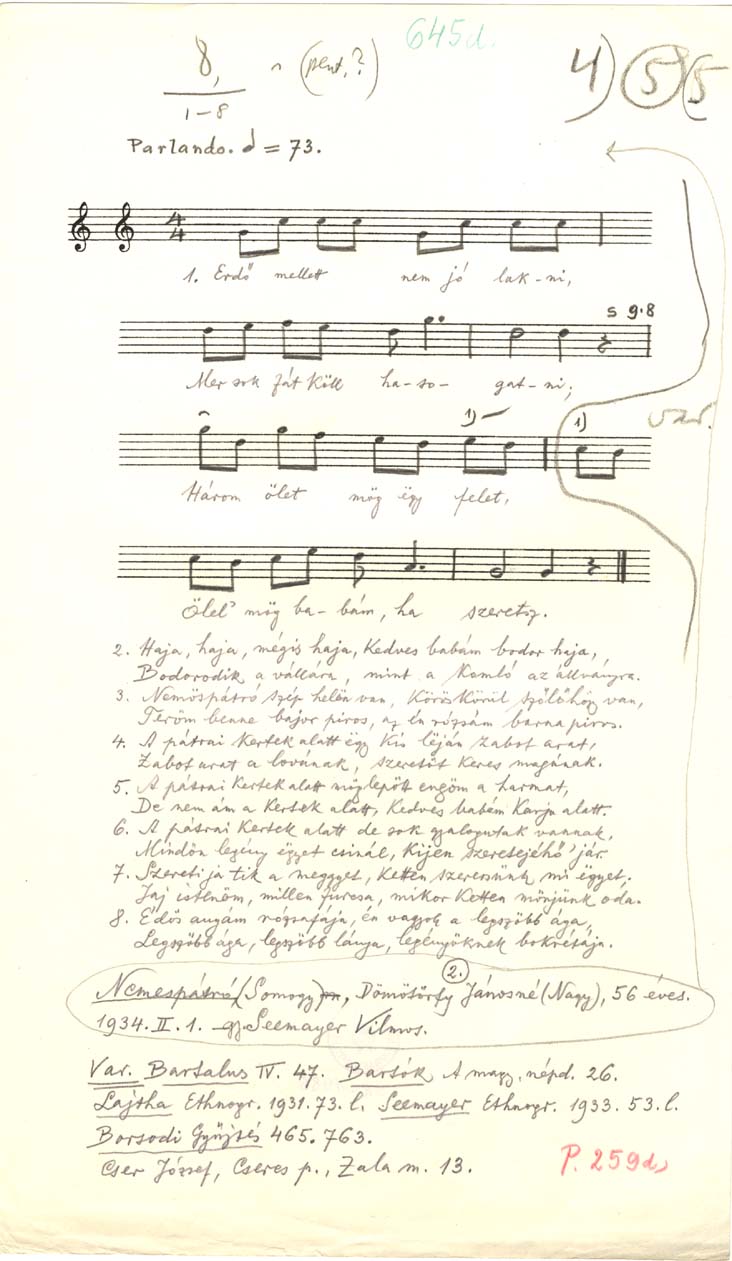 645d.
8,
1-8
(pent.?)
4) 5 5
Parlando. = 73.
1. Erdő mellett nem jó lak-ni,
s 9.8
Mer sok fát köll ha-so- gat-ni;
1) 1)
var.
Három ölet mög égy felet,
Ölel' mög ba-bám, ha szeretsz.
2. Haja, haja, mégis haja, Kedves babám bodor haja,
Bodorodik a vállára, mint a komló az állványra.
3. Nemöspátró szép helen van, Köröskörül szőlőhögy van,
Teröm benne bajor piros, az én rózsám barna piros.
4. A pátrai kertek alatt égy kis léján zabot arat,
Zabot arat a lovának, szeretőt keres magának.
5. A pátrai kertek alatt möglepött engöm a harmat,
De nem ám a kertek alatt, Kedves babám karja alatt.
6. A pátrai kertek alatt de sok gyalogutak vannak,
Mindön legény égyet csinál, kijen szeretejéhő' jár.
7. Szereti ja tik a meggyet, ketten szeressünk mi égyet,
Jaj istenöm, millen furcsa, mikor ketten mönjünk oda.
8. Édös anyám rózsafája, én vagyok a legszöbb ága,
Legszöbb ága, legszöbb lánya, legényöknek bokrétája.
2.
Nemespátró (Somogy), Dömötörfy Jánosné (Nagy), 56 éves.
1934. II. 1. gy. Seemayer Vilmos.
Var. Bartalus IV. 47. Bartók A magy. népd. 26.
Lajtha Ethnogr. 1931. 73. l. Seemayer Ethnogr. 1933. 53. l.
Borsodi Gyűjtés 465. 763.
Cser József, Cseres p., Zala m. 13.
P. 259d